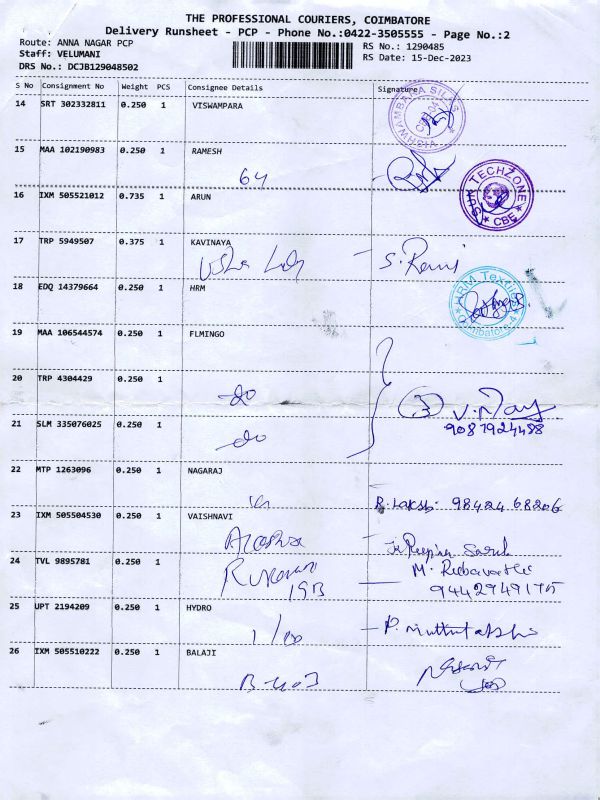 THE PROFESSIONAL COURIERS, COIMBATORE
Delivery Runsheet - PCP - Phone No.:0422-3505555 - Page No.:2
Route: ANNA NAGAR PCP
RS No.: 1290485
Staff: VELUMANI
RS Date: 15-Dec-2023
DRS No.: DCJB129048502
S No Consignment No Weight PCS Consignee Details Signature
14 SRT 302332811 0.250 1 VISWAMPARA
15 MAA 102190983 0.250 1 RAMESH
64
TECHZONE
CBE
16 IXM 505521012 0.735 1 ARUN
17 TRP 5949507 0.375 1 KAVINAYA
S. Rani
18 EDQ 14379664 0.250 1 HRM
HRM Textiles
Coimbatore-4
19 MAA 106544574 0.250 1 FLMINGO
20 TRP 4304429 0.250 1
do
3
9087924488
21 SLM 335076025 0.250 1
do
22 MTP 1263096 0.250 1 NAGARAJ
98424 68206
23 IXM 505504530 0.250 1 VAISHNAVI
24 TVL 9895781 0.250 1
19B
9442949175
25 UPT 2194209 0.250 1 HYDRO
26 IXM 505510222 0.250 1 BALAJI
B-403